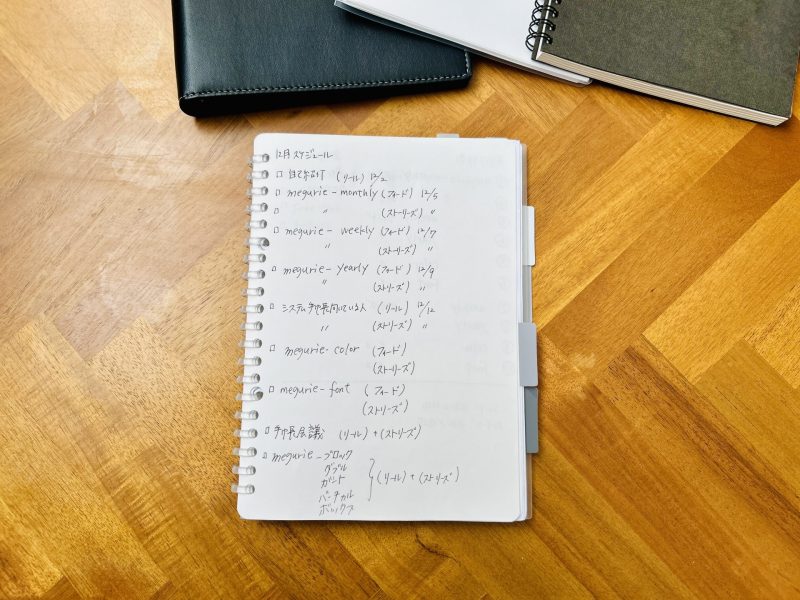 12月スケジュール
□ 自己紹介 (リール) 12/2
□ megurie-monthly (フィード) 12/5
□ 〃 (ストーリーズ) 〃
□ megurie- weekly (フィード) 12/7
〃 (ストーリーズ) 〃
□ megurie- yearly (フィード) 12/9
〃 (ストーリーズ) 〃
□ システム手帳向いている人 (リール) 12/12
〃 (ストーリーズ) 〃
□ megurie- color (フィード)
(ストーリーズ)
□ megurie- font (フィード)
(ストーリーズ)
□ 手帳会議 (リール) + (ストーリーズ)
□ megurie - ブロック
ダブル
ガント } (リール) + (ストーリーズ)
バーチカル
ボックス